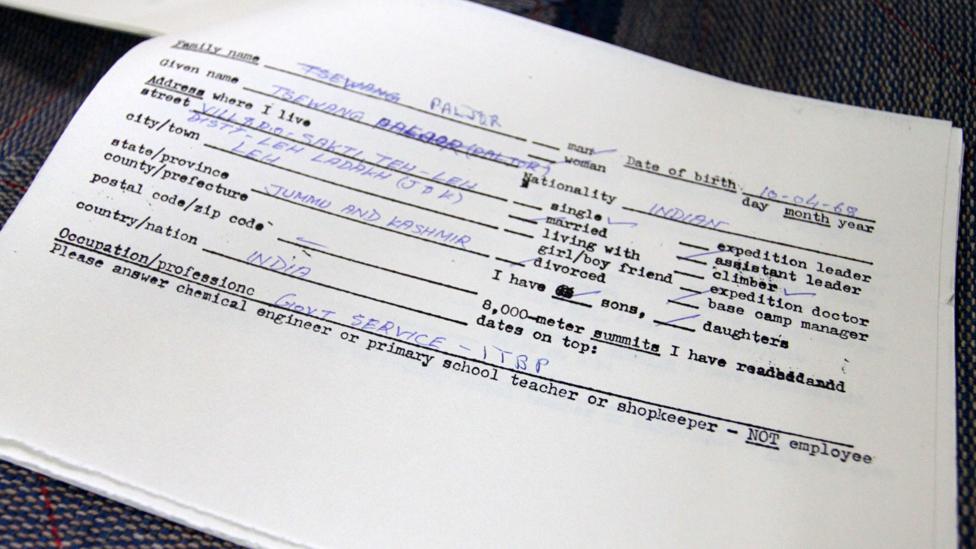 Family name TSEWANG PALJOR
Given name TSEWANG (PALJOR)
man
woman
Date of birth 10-04-68
day month year
Address where I live
street VILL & P.O- SAKTI TEH-LEH
DISTT- LEH LADAKH (J&K)
Nationality INDIAN
city/town LEH
single
married
living with
girl/boy friend
divorced
expedition leader
assistant leader
climber
expedition doctor
base camp manager
state/province
county/prefecture JUMMU AND KASHMIR
postal code/zip code
I have sons, daughters
country/nation INDIA
8,000-meter summits I have
dates on top:
Occupation/professionc GOVT SERVICE - ITBP
Please answer chemical engineer or primary school teacher or shopkeeper - NOT employee